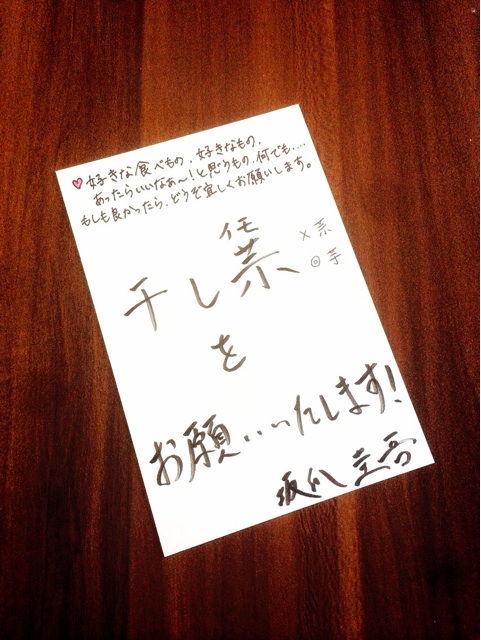 ♥好きな食べもの、好きなもの、
あったらいいなぁ〜!と思うもの、何でも....
もしも良かったら、どうぞ宜しくお願いします。
イモ
干し
×
◎
を
お願いいたします!